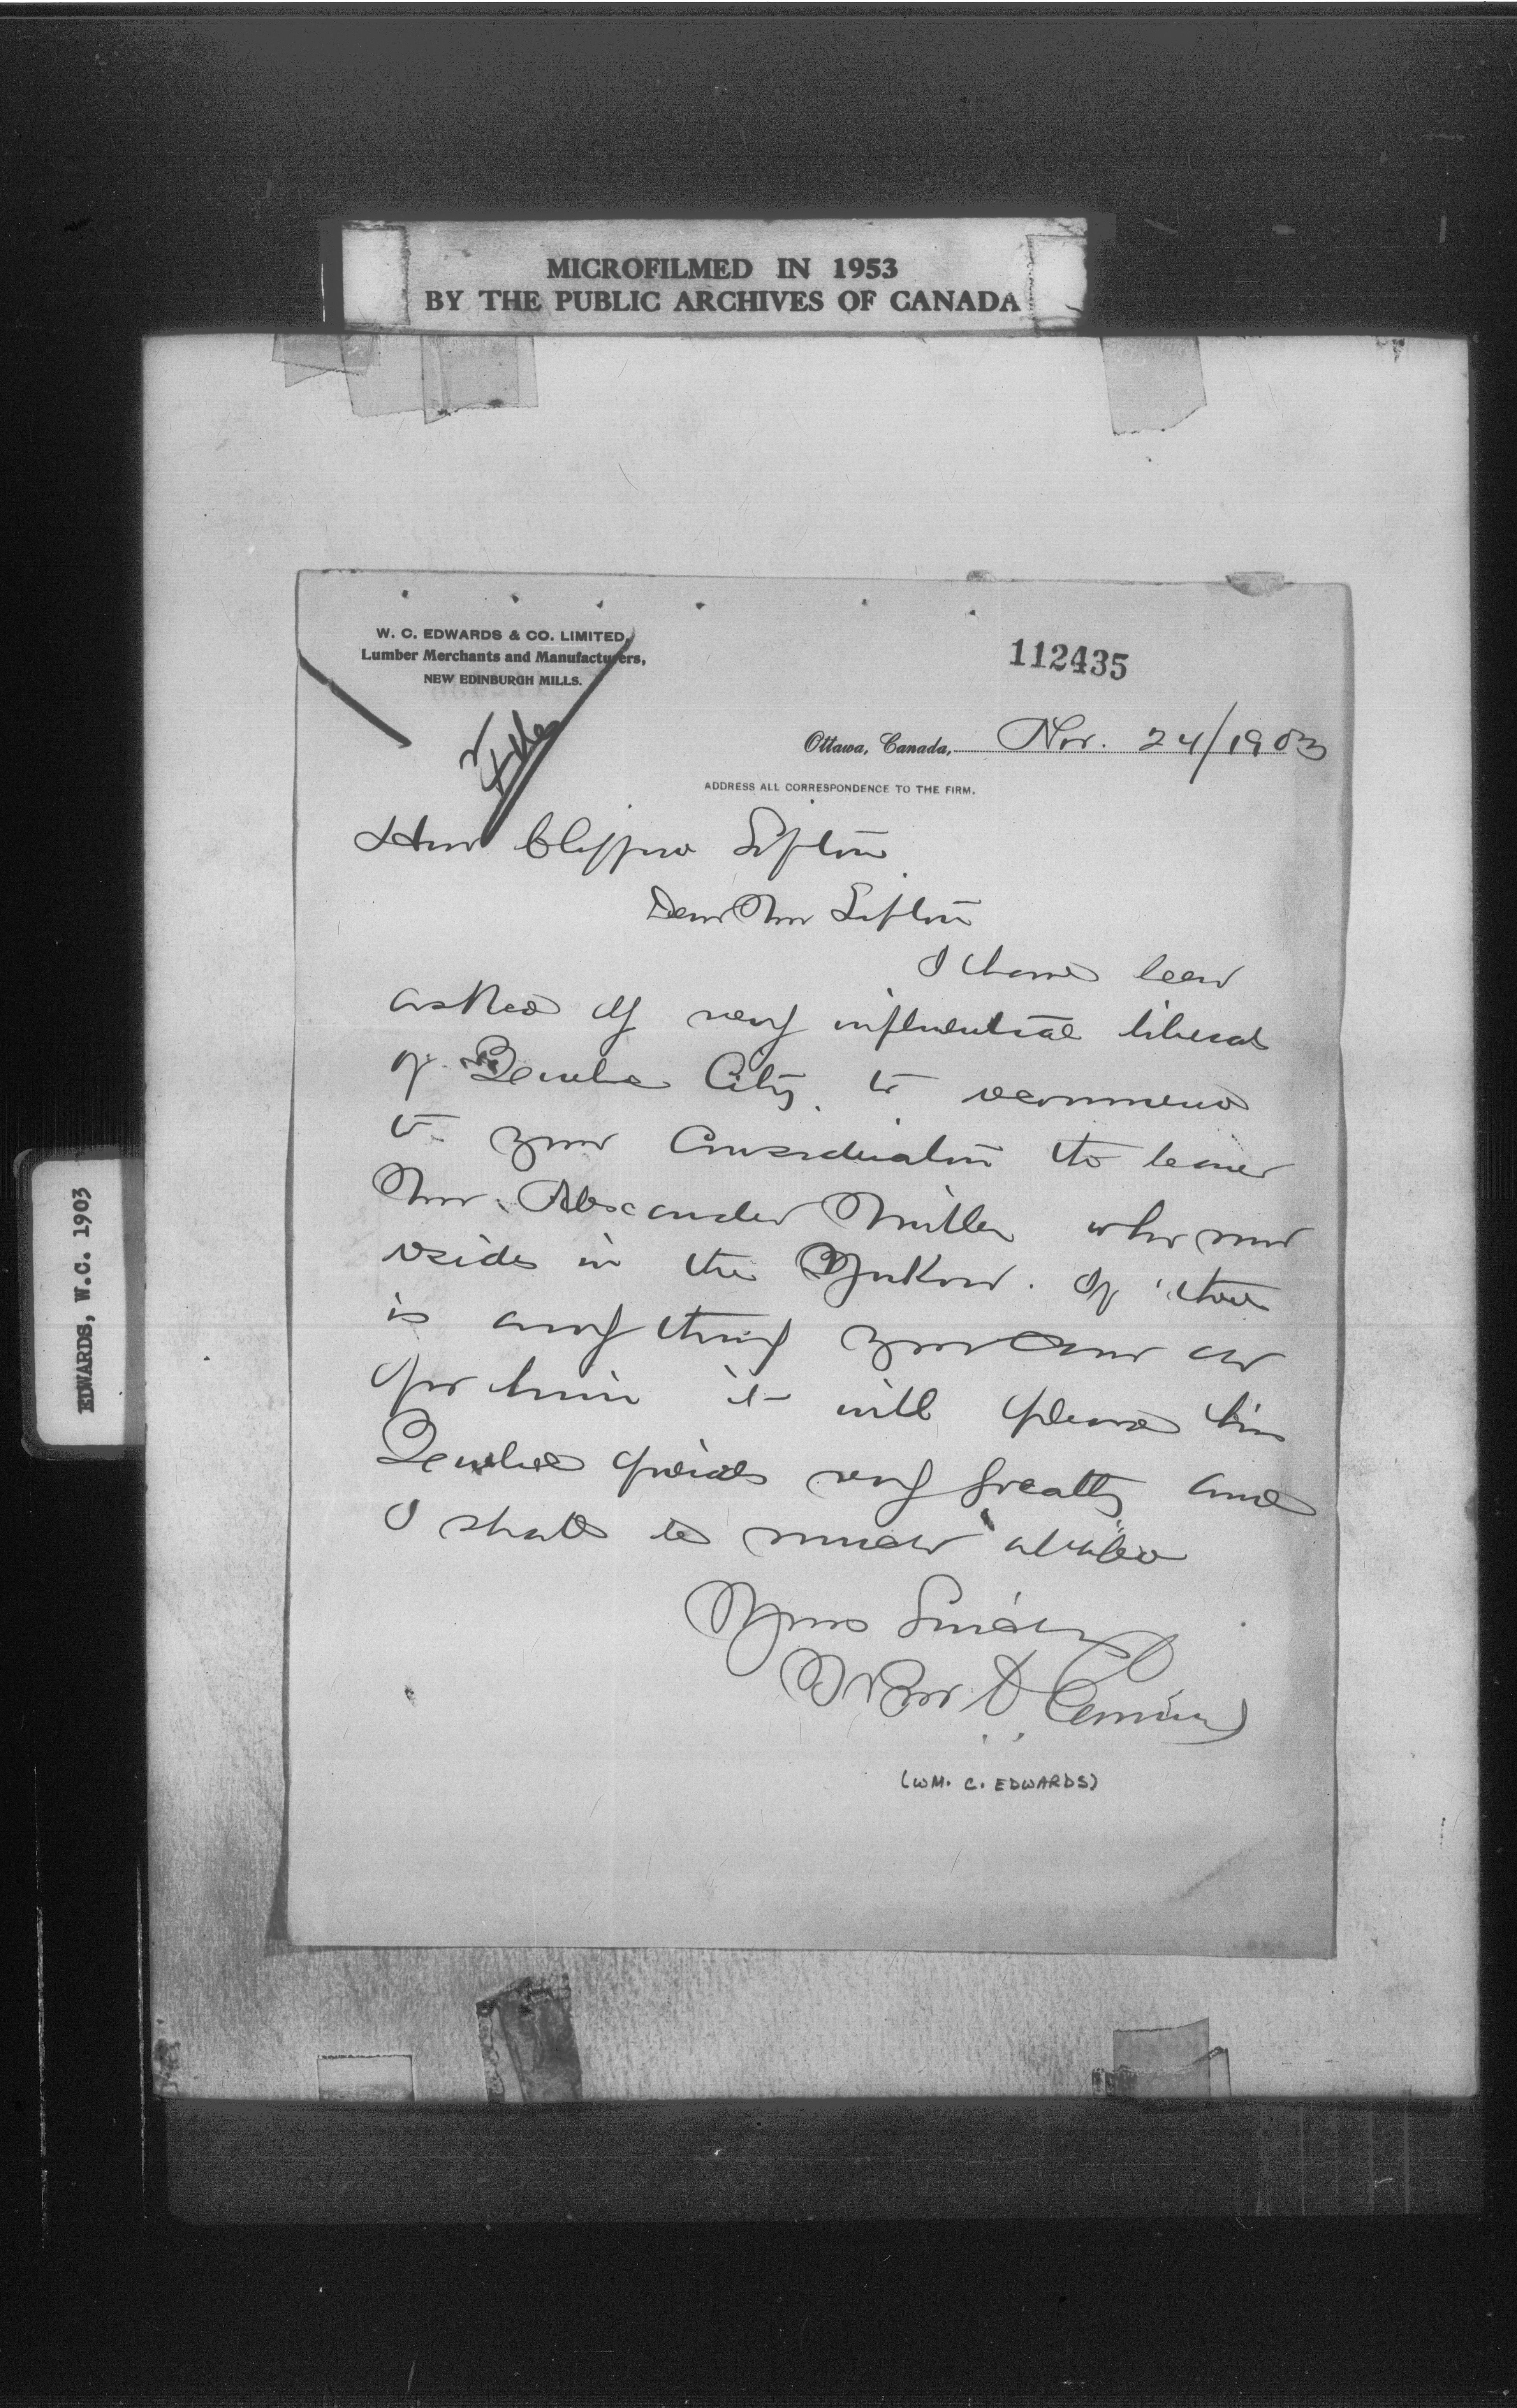 MICROFILMED IN 1953
BY THE PUBLIC ARCHIVES OF CANADA
EDWARDS, W.C. 1903
W. C. EDWARDS & CO. LIMITED,
Lumber Merchants and Manufacturers,
NEW EDINBURGH MILLS.
112435
File
Ottawa, Canada, Nov. 24/1903
ADDRESS ALL CORRESPONDENCE TO THE FIRM.
Hon Clifford Sifton
Dear Mr Sifton
I have been
asked by very influential liberals
of Quebec City to recommend
to your consideration the bearer
Mr. Alexander Miller who now
resides in the Yukon. If there
is any thing you can do
for him it will please his
Quebec friends very greatly and
I shall be much obliged
Yours Sincerely
Wm C. Edwards
(WM. C. EDWARDS)